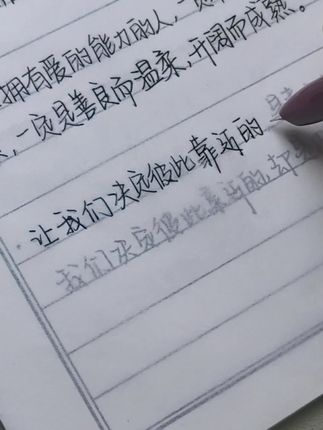 拥有爱的能力的人,一定
,一定是善良而温柔,开阔而成熟。
让我们决定彼此靠近的
我们决定彼此靠近的,却